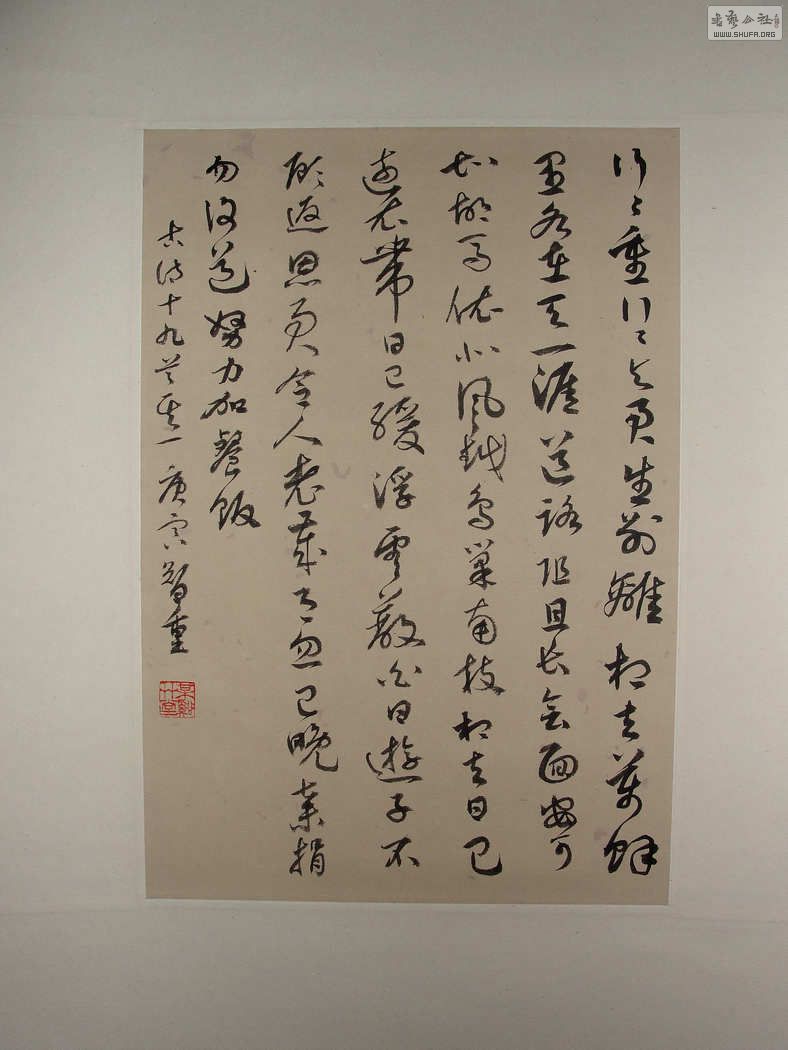 行〻重行〻與君生別離相去萬餘
里各在天一涯道路阻且長會面安可
知胡馬依北風越鳥巢南枝相去日已
遠衣帶日已緩浮雲蔽白日遊子不
顧返思君令人老歲月忽已晚棄捐
勿復道努力加餐飯
古詩十九首其一庚寅智重
書藝公社
WWW.SHUFA.ORG